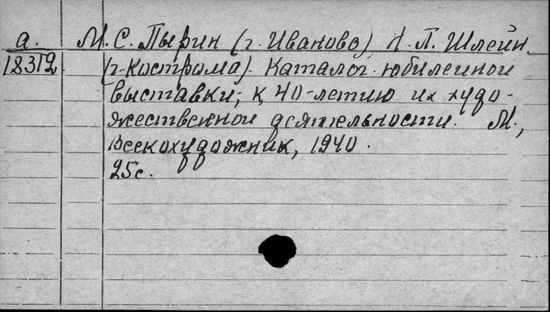 а. М. С. Пырин (г. Иваново) Н. Л. Шлеин
18312 (г. Кострома). Каталог юбилейной
выставки, к 40-летию их худо-
жественной деятельности. М.,
Всекохудожник, 1940.
25с.